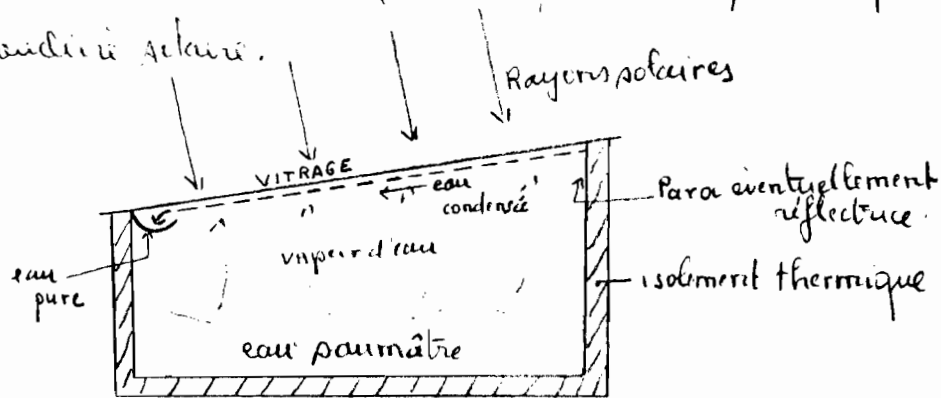 solaire.
Rayons solaires
VITRAGE
eau
condensée
Paroi éventuellement
réflectrice.
vapeur d'eau
eau
pure
isolement thermique
eau saumâtre